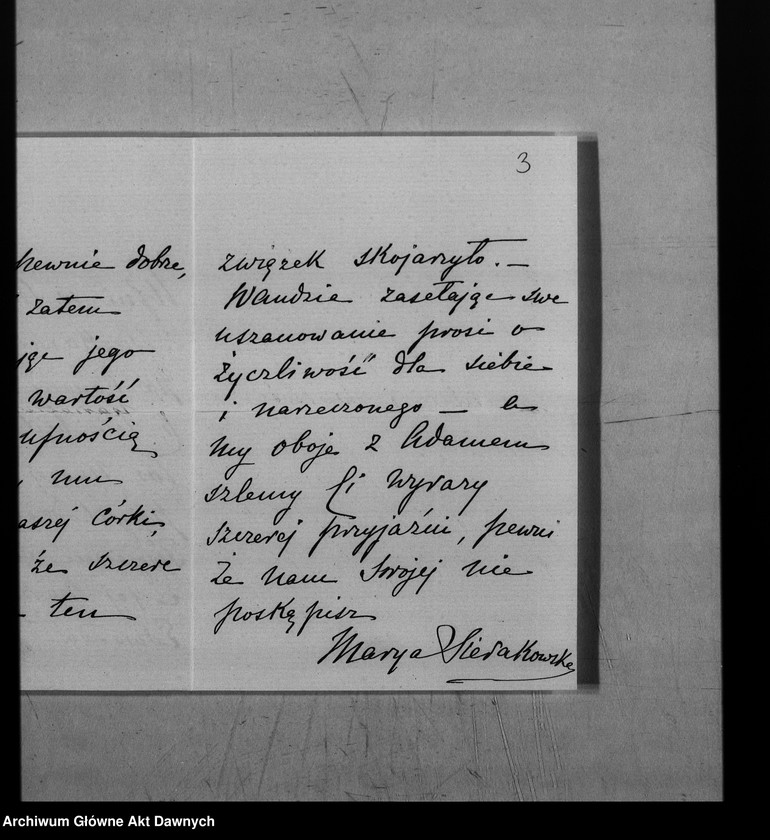 3
pewnie dobre,
zatem
jąc jego
wartość
ufnością
mu
aszej córki,
że szczere
ten
związek skojarzyło. —
Wandzia zasełając swe
uszanowanie prosi o
życzliwość dla siebie
i narzeczonego — a
my oboje z Adamem
szlemy Ci wyrazy
szczerej przyjaźni, pewni
że nam swojej nie
poskąpisz
Marya Sierakowska
Archiwum Główne Akt Dawnych